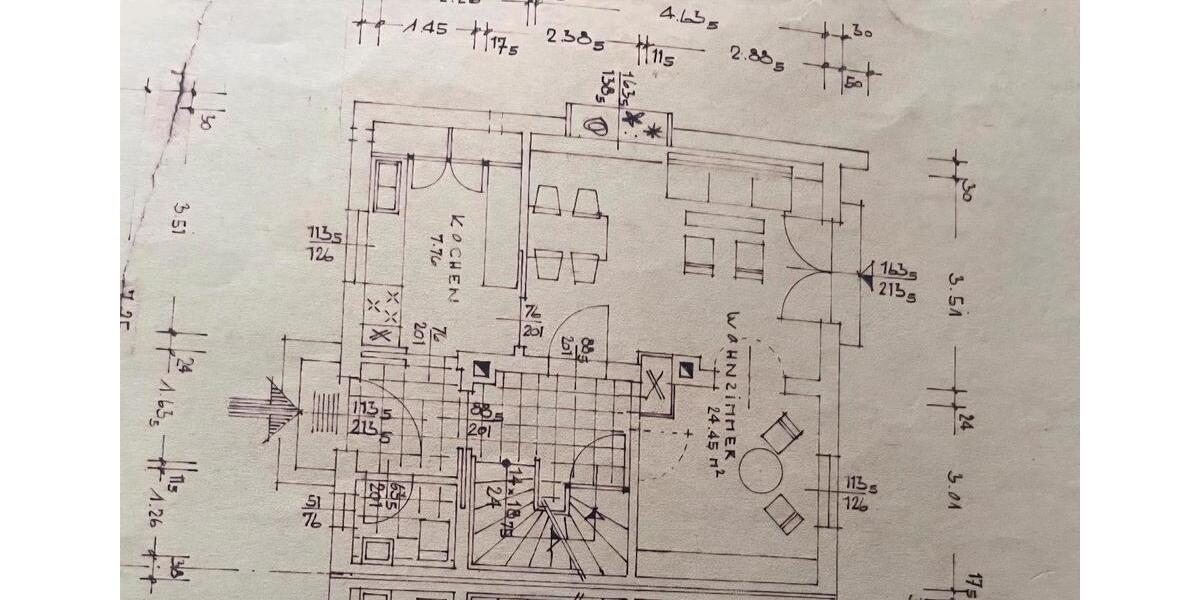 4.63₅
30
1.45
17₅
2.38₅
11₅
2.88₅
58
163₅
138₅
30
3.51
24
1.63₅
11₅
1.26
38
113₅
126
KOCHEN
7.76
76
201
76
201
88₅
201
163₅
213₅
WOHNZIMMER
24.45 m²
113₅
213₅
88₅
201
63₅
201
51
76
14×18,75
24
113₅
126
30
3.51
24
3.01
17₅